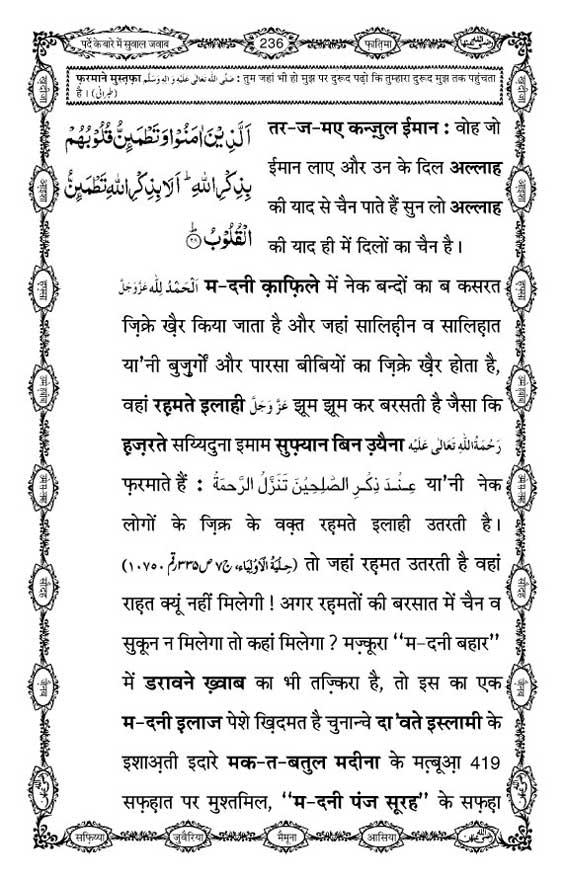 पर्दे के बारे में सुवाल जवाब
236
फ़ातिमा
फ़रमाने मुस्तफ़ा صَلَّى اللهُ تَعَالٰى عَلَيْهِ وَاٰلِهٖ وَسَلَّم : तुम जहां भी हो मुझ पर दुरूद पढ़ो कि तुम्हारा दुरूद मुझ तक पहुंचता
है । (طبرانى)
اَلَّذِيْنَ اٰمَنُوْا وَتَطْمَىِٕنُّ قُلُوْبُهُمْ
بِذِكْرِ اللّٰهِ ؕ اَلَا بِذِكْرِ اللّٰهِ تَطْمَىِٕنُّ
الْقُلُوْبُ ﴿۲۸﴾
तर-ज-मए कन्ज़ुल ईमान : वोह जो
ईमान लाए और उन के दिल अल्लाह
की याद से चैन पाते हैं सुन लो अल्लाह
की याद ही में दिलों का चैन है ।
اَلْحَمْدُ لِلّٰه عَزَّوَجَلَّ म-दनी क़ाफ़िले में नेक बन्दों का ब कसरत
ज़िक्रे ख़ैर किया जाता है और जहां सालिहीन व सालिहात
या'नी बुज़ुर्गों और पारसा बीबियों का ज़िक्रे ख़ैर होता है,
वहां रह़मते इलाही عَزَّوَجَلَّ झूम झूम कर बरसती है जैसा कि
ह़ज़रते सय्यिदुना इमाम सुफ़्यान बिन उ़यैना رَحْمَةُاللهِ تَعَالٰى عَلَيْه
फ़रमाते हैं : عِنْدَ ذِكْرِ الصّٰلِحِيْنَ تَنَزَّلُ الرَّحمَةُ या'नी नेक
लोगों के ज़िक्र के वक़्त रह़मते इलाही उतरती है ।
(حِلْيَةُ الْاَوْلِيَاء، ج٧ ص٣٣٥ رقم ١٠٧٥٠) तो जहां रह़मत उतरती है वहां
राह़त क्यूं नहीं मिलेगी ! अगर रह़मतों की बरसात में चैन व
सुकून न मिलेगा तो कहां मिलेगा ? मज़्कूरा ‘‘म-दनी बहार’’
में डरावने ख़्वाब का भी तज़्किरा है, तो इस का एक
म-दनी इलाज पेशे ख़िदमत है चुनान्चे दा'वते इस्लामी के
इशाअ़ती इदारे मक-त-बतुल मदीना के मत़्बूआ़ 419
सफ़ह़ात पर मुश्तमिल, ‘‘म-दनी पंज सूरह’’ के सफ़ह़ा
सफ़िय्या
जुवैरिया
मैमूना
आसिया